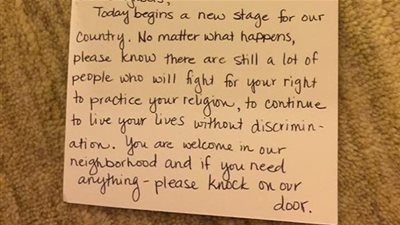 Today begins a new stage for our
Country. No matter what happens,
please know there are still a lot of
people who will fight for your right
to practice your religion, to continue
to live your lives without discrimin-
ation. You are welcome in our
neighborhood and if you need
anything - please knock on our
door.